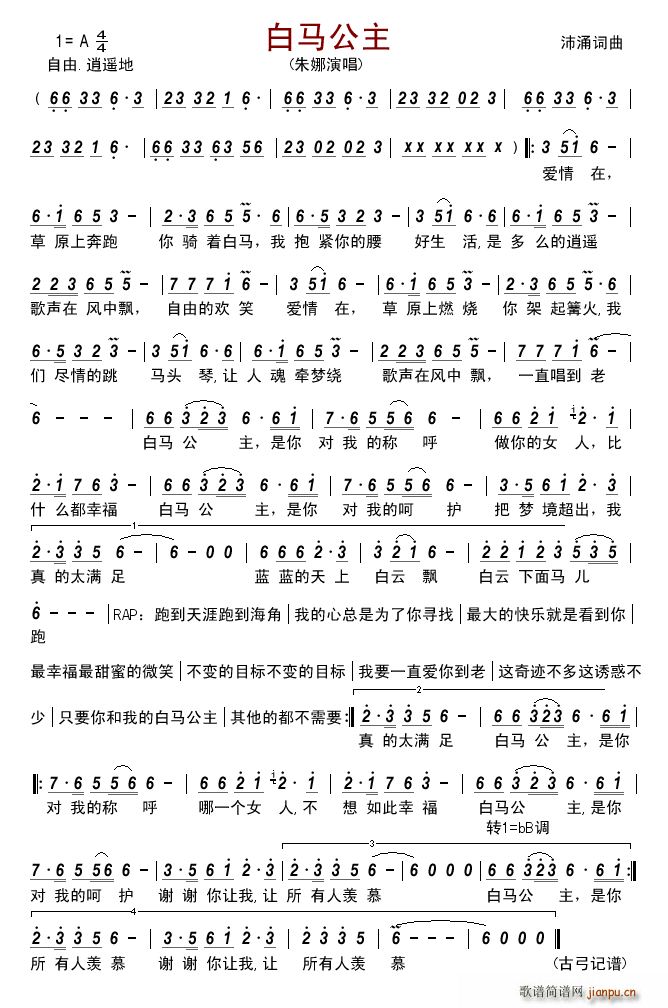 白马公主
1= A 4/4
沛涌词曲
自由.逍遥地
(朱娜演唱)
( 6 6 3 3 6 · 3 | 2 3 3 2 1 6 · | 6 6 3 3 6 · 3 | 2 3 3 2 0 2 3 | 6 6 3 3 6 · 3 |
2 3 3 2 1 6 · | 6 6 3 3 6 3 5 6 | 2 3 0 2 0 2 3 | x x x x x x x ) ‖: 3 5 1 6 - |
爱情 在,
6 · 1 6 5 3 - | 2 · 3 6 5 5 · 6 | 6 · 5 3 2 3 - | 3 5 1 6 · 6 | 6 · 1 6 5 3 - |
草 原上奔跑 你 骑 着白马,我 抱 紧你的腰 好生 活,是 多 么的逍遥
2 2 3 6 5 5 - | 7 7 7 1 6 - | 3 5 1 6 - | 6 · 1 6 5 3 - | 2 · 3 6 5 5 · 6 |
歌声在 风中飘, 自由的欢 笑 爱情 在, 草 原上燃 烧 你 架 起篝火,我
6 · 5 3 2 3 - | 3 5 1 6 · 6 | 6 · 1 6 5 3 - | 2 2 3 6 5 5 - | 7 7 7 1 6 - |
们 尽情的跳 马头 琴,让 人 魂 牵梦绕 歌声在风中 飘, 一直唱到 老
6 - - - | 6 6 3 2 3 6 · 6 1 | 7 · 6 5 5 6 6 - | 6 6 2 1 2 · 1 |
白马 公 主,是你 对 我 的称 呼 做你的女 人,比
2 · 1 7 6 3 - | 6 6 3 2 3 6 · 6 1 | 7 · 6 5 5 6 6 - | 3 · 5 6 1 2 · 3 |
什 么都幸福 白马 公 主,是你 对 我的呵 护 把 梦 境超出,我
1
2 · 3 3 5 6 - | 6 - 0 0 | 2 · 3 3 2 1 - | 3 2 1 6 - | 2 2 1 2 3 5 3 5 |
真 的太满 足 蓝 蓝的天 上 白云 飘 白云 下面马 儿
6 - - - | RAP：跑到天涯跑到海角 | 我的心总是为了你寻找 | 最大的快乐就是看到你
跑
最幸福最甜蜜的微笑 | 不变的目标不变的目标 | 我要一直爱你到老 | 这奇迹不多这诱惑不
2
少 | 只要你和我的白马公主 | 其他的都不需要 :‖ 2 · 3 3 5 6 - | 6 6 3 2 3 6 · 6 1 |
真 的太满 足 白马 公 主,是你
‖: 7 · 6 5 5 6 6 - | 6 6 2 1 2 · 1 | 2 · 1 7 6 3 - | 6 6 3 2 3 6 · 6 1 |
对 我的称 呼 哪一个女 人,不 想 如此幸 福 白马公 主,是你
转1=bB调
3
7 · 6 5 5 6 - | 3 · 5 6 1 2 · 3 | 2 · 3 3 5 6 - | 6 0 0 0 | 6 6 3 2 3 6 · 6 1 :‖
对 我的呵 护 谢 谢 你让我,让 所 有人羡 慕 白马公 主,是你
4
2 · 3 3 5 6 - | 3 · 5 6 1 2 · 3 | 2 · 3 3 5 6 - - | 6 0 0 0 |
所 有人羡 慕 谢 谢 你让我,让 所 有人羡 慕 (古弓记谱)
歌谱简谱网
jianpu.cn